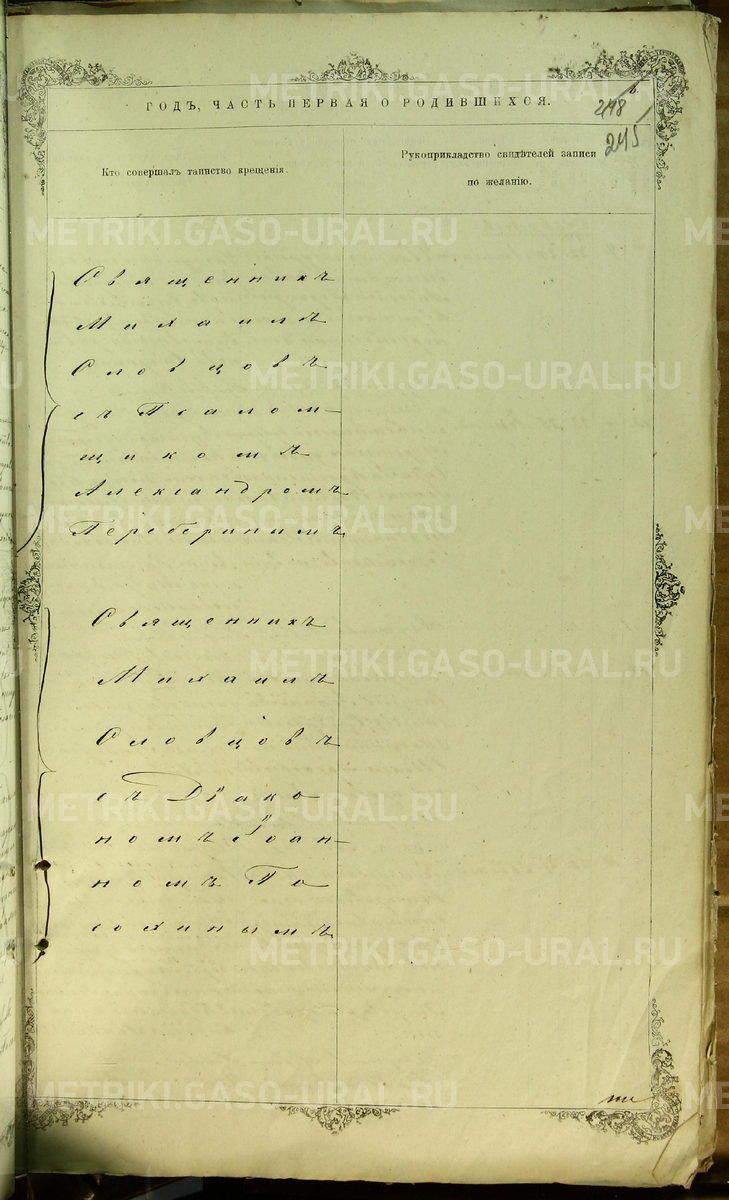 ГОДЪ, ЧАСТЬ ПЕРВАЯ О РОДИВШИХСЯ.
248
245
Кто совершалъ таинство крещенія.
Рукоприкладство свидѣтелей записи
по желанію.
Священникъ
Михаилъ
Словцовъ
съ Псалом-
щикомъ
Александромъ
Священникъ
Михаилъ
Словцовъ
съ Діако
номъ Іоан-
номъ По
сохинымъ
METRIKI.GASO-URAL.RU